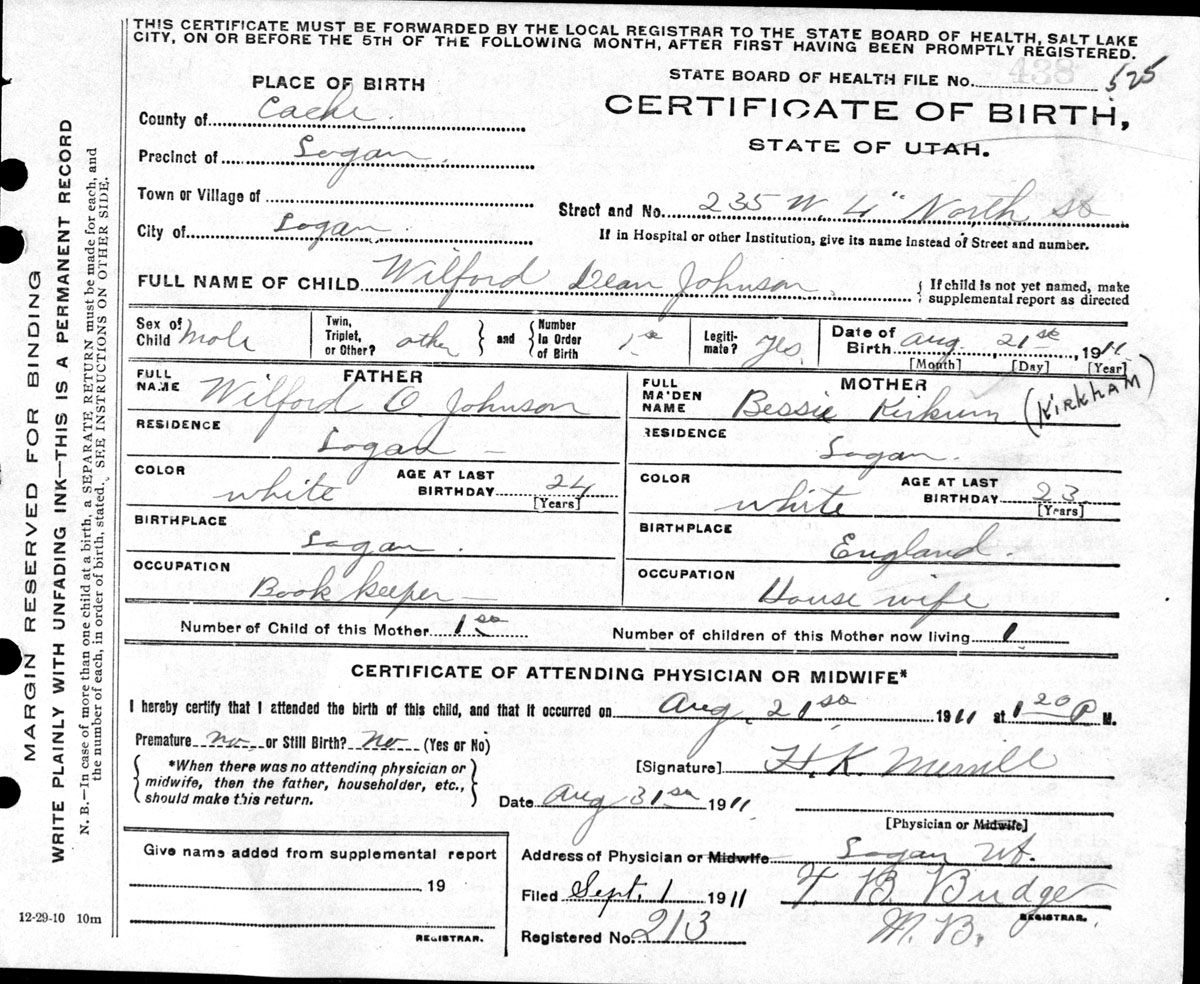 THIS CERTIFICATE MUST BE FORWARDED BY THE LOCAL REGISTRAR TO THE STATE BOARD OF HEALTH, SALT LAKE
CITY, ON OR BEFORE THE 5TH OF THE FOLLOWING MONTH, AFTER FIRST HAVING BEEN PROMPTLY REGISTERED.
MARGIN RESERVED FOR BINDING
WRITE PLAINLY WITH UNFADING INK—THIS IS A PERMANENT RECORD
N. B.—In case of more than one child at a birth, a SEPARATE RETURN must be made for each, and
the number of each, in order of birth, stated. SEE INSTRUCTIONS ON OTHER SIDE.
STATE BOARD OF HEALTH FILE No. 525
438
PLACE OF BIRTH
CERTIFICATE OF BIRTH,
STATE OF UTAH.
County of Cache
Precinct of Logan
Town or Village of
Street and No. 235 W. 4" North so
City of Logan
If in Hospital or other Institution, give its name instead of Street and number.
FULL NAME OF CHILD Wilford Dean Johnson { If child is not yet named, make
supplemental report as directed
Sex of Child Male Twin, Triplet, or Other? other } and { Number In Order of Birth 1st Legiti-mate? Yes Date of Birth Aug. 21st, 1911
[Month] [Day] [Year]
FATHER MOTHER
FULL NAME Wilford O. Johnson FULL MAIDEN NAME Bessie Kirkum (KIRKHAM)
RESIDENCE Logan RESIDENCE Logan
COLOR white AGE AT LAST BIRTHDAY 24 [Years] COLOR white AGE AT LAST BIRTHDAY 23 [Years]
BIRTHPLACE Logan BIRTHPLACE England
OCCUPATION Book keeper OCCUPATION House wife
Number of Child of this Mother 1st Number of children of this Mother now living 1
CERTIFICATE OF ATTENDING PHYSICIAN OR MIDWIFE*
I hereby certify that I attended the birth of this child, and that it occurred on Aug. 21st 1911 at 1 20 P M.
Premature no or Still Birth? no (Yes or No)
{ *When there was no attending physician or
midwife, then the father, householder, etc.,
should make this return. }
[Signature] H. K. Merrill
Date Aug 31st 1911
[Physician or Midwife]
Give name added from supplemental report
19
REGISTRAR.
Address of Physician or Midwife Logan Ut.
Filed Sept. 1 1911 T. B. Budge
M. D. REGISTRAR.
Registered No. 213
12-29-10 10m